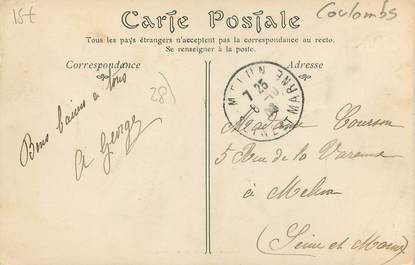 15€
Coulombs
Carte Postale
Tous les pays étrangers n'acceptent pas la correspondance au recto.
Se renseigner à la poste.
Correspondance
Adresse
28)
Bons baisers à tous
George
MELUN
7 25
SEINE ET MARNE
Madame Courson
5 Rue de la Varenne
à Melun
(Seine et Marne)